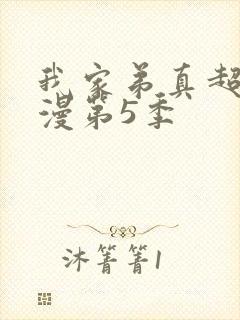 我家弟真超
漫第5季
沐箐箐1